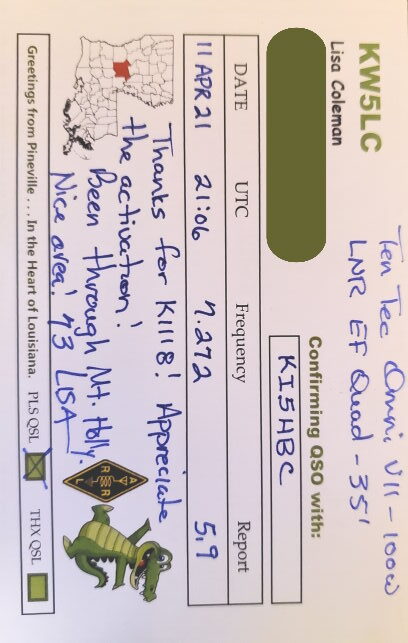 KW5LC
Lisa Coleman
Ten Tec Omni VII - 100W
LNR EF Quad - 35'
Confirming QSO with:
KI5HBC
DATE UTC Frequency Report
11 APR 21 21:06 7.272 5,9
Thanks for K1118! Appreciate
the activation!
Been through Mt. Holly.
Nice area! 73 LISA
ARRL
Greetings from Pineville . . . In the Heart of Louisiana. PLS QSL THX QSL